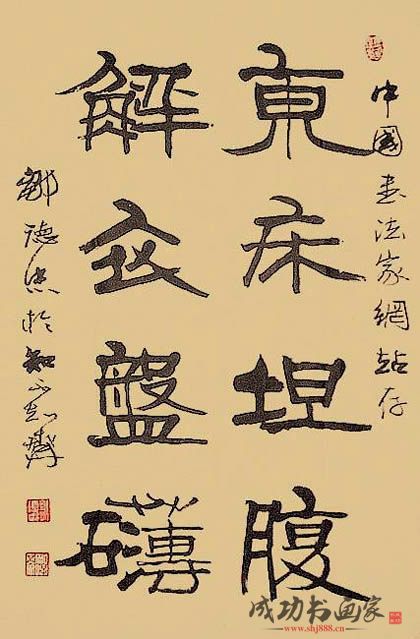 中國书法家網站存
東床坦腹
解衣盤礴
鄒德忠於知不知齋
成功书画家
www.shj888.cn